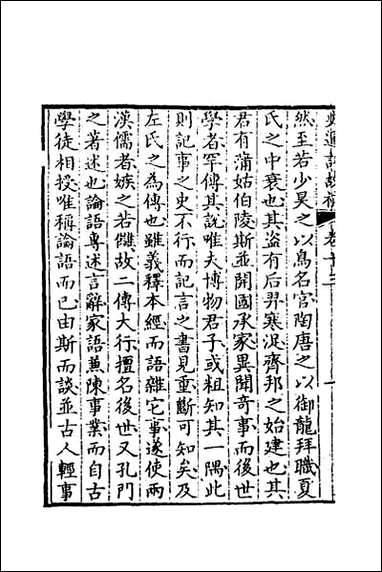 史通訓故補 卷十三 一
然至若少昊之以鳥名官陶唐之以御龍拜職夏
氏之中衰也其盗有后羿寒浞齊邦之始建也其
君有蒲姑伯陵斯並開國承家異聞竒事而後世
學者罕傳其說唯夫博物君子或粗知其一隅此
則記事之史不行而記言之書見重斷可知矣及
左氏之為傳也雖義釋本經而語雜它事遂使兩
漢儒者嫉之若讎故二傳大行擅名後世又孔門
之著述也論語專述言辭家語兼陳事業而自古
學徒相授唯稱論語而已由斯而談並古人輕事